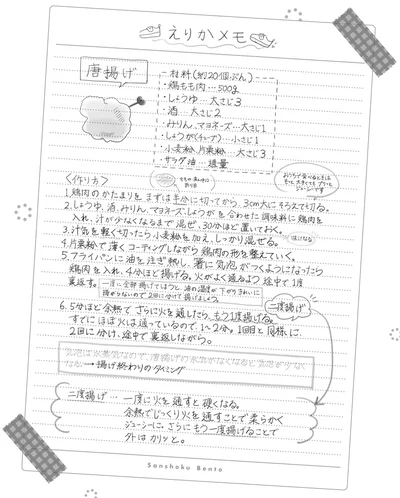 えりかメモ
唐揚げ
材料(約20個ぶん)
・鶏もも肉…500g
・しょうゆ…大さじ3
・酒…大さじ2
・みりん、マヨネーズ…大さじ1
・しょうが(チューブ)…小さじ1
・小麦粉、片栗粉…大さじ3
・サラダ油…適量
<作り方>
1.鶏肉のかたまりをまずは半分に切ってから、3cm大にそろえて切る。
2.しょうゆ、酒、みりん、マヨネーズ、しょうがを合わせた調味料に鶏肉を
入れ、汁が少なくなるまで混ぜ、30分ほど置いておく。
3.汁気を軽く切ったら小麦粉を加え、しっかり混ぜる。
4.片栗粉で薄くコーティングしながら鶏肉の形を整えていく。
5.フライパンに油を注ぎ熱し、箸に気泡がつくようになったら
鶏肉を入れ、4分ほど揚げる。火がよく通るよう途中で1度
裏返す。
一度に全部揚げてしまうと、油の温度が下がりきれいに
揚がらないので2回に分けて揚げましょう
6.5分ほど余熱でさらに火を通したら、もう1度揚げる。
すでにほぼ火は通っているので、1~2分。1回目と同様に、
2回に分け、途中で裏返しながら。
二度揚げ
気泡は水蒸気なので、唐揚げの水気がなくなると気泡が少なく
なる→揚げ終わりのタイミング
二度揚げ…一度に火を通すと硬くなる。
余熱でじっくり火を通すことで柔らかく
ジューシーに。さらにもう一度揚げることで
外はカリッと。
Sanshoku Bento